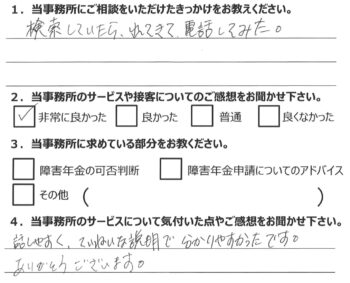 1．当事務所にご相談をいただけたきっかけをお教えください。
検索していたら、出てきて、電話してみた。
2．当事務所のサービスや接客についてのご感想をお聞かせ下さい。
☑ 非常に良かった □ 良かった □ 普通 □ 良くなかった
3．当事務所に求めている部分をお教えください。
□ 障害年金の可否判断 □ 障害年金申請についてのアドバイス
□ その他 （ ）
4．当事務所のサービスについて気付いた点やご感想をお聞かせ下さい。
話しやすく、ていねいな説明で分かりやすかったです。
ありがとうございます。